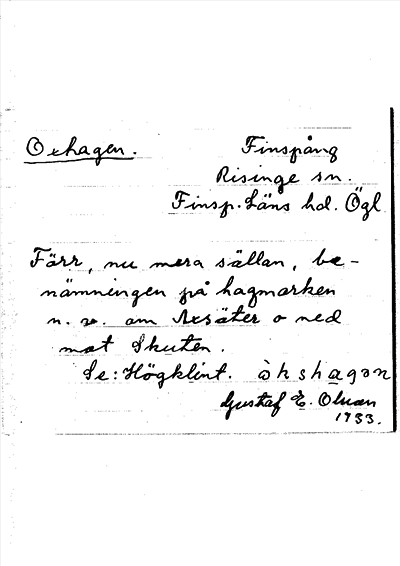 Oxhagen. Finspång
Risinge sn.
Finsp. Läns hd. Ögl
Förr, nu mera sällan, be-
nämningen på hagmarken
n. v. om Axsäter o ned
mot Skuten.
Se: Högklint. òkshagən
Gustaf E. Olsson
1933.